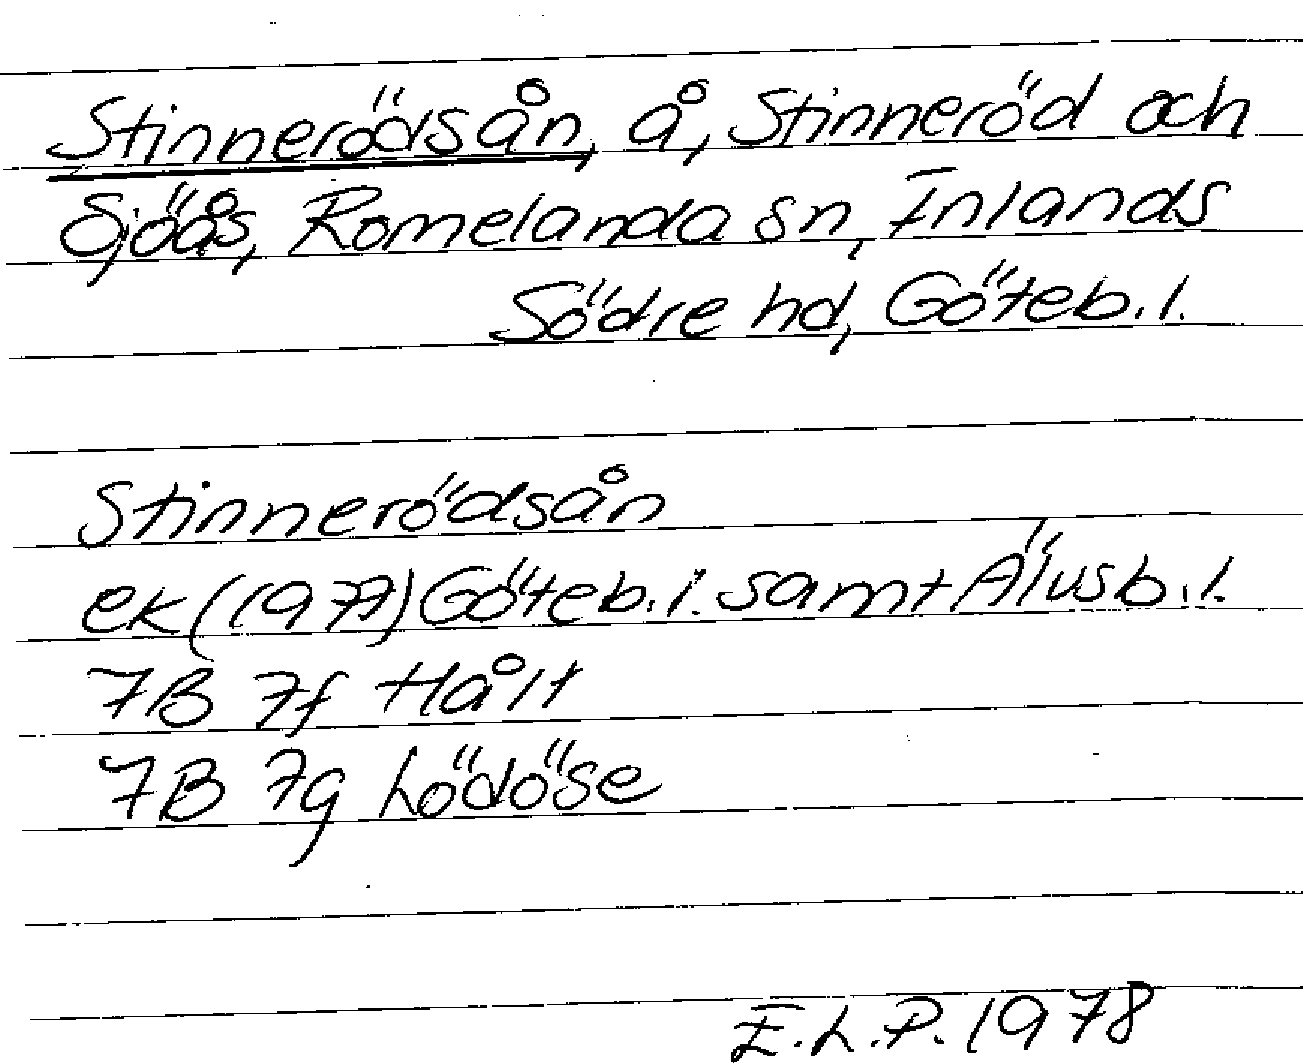 Stinnerödsån, å, Stinneröd och
Sjöås, Romelanda sn, Inlands
Södre hd, Göteb. l.
Stinnerödsån
ek (1977) Göteb. l. samt Älvsb. l.
7B 7f Hålt
7B 7g Lödöse
E.L.P. 1978